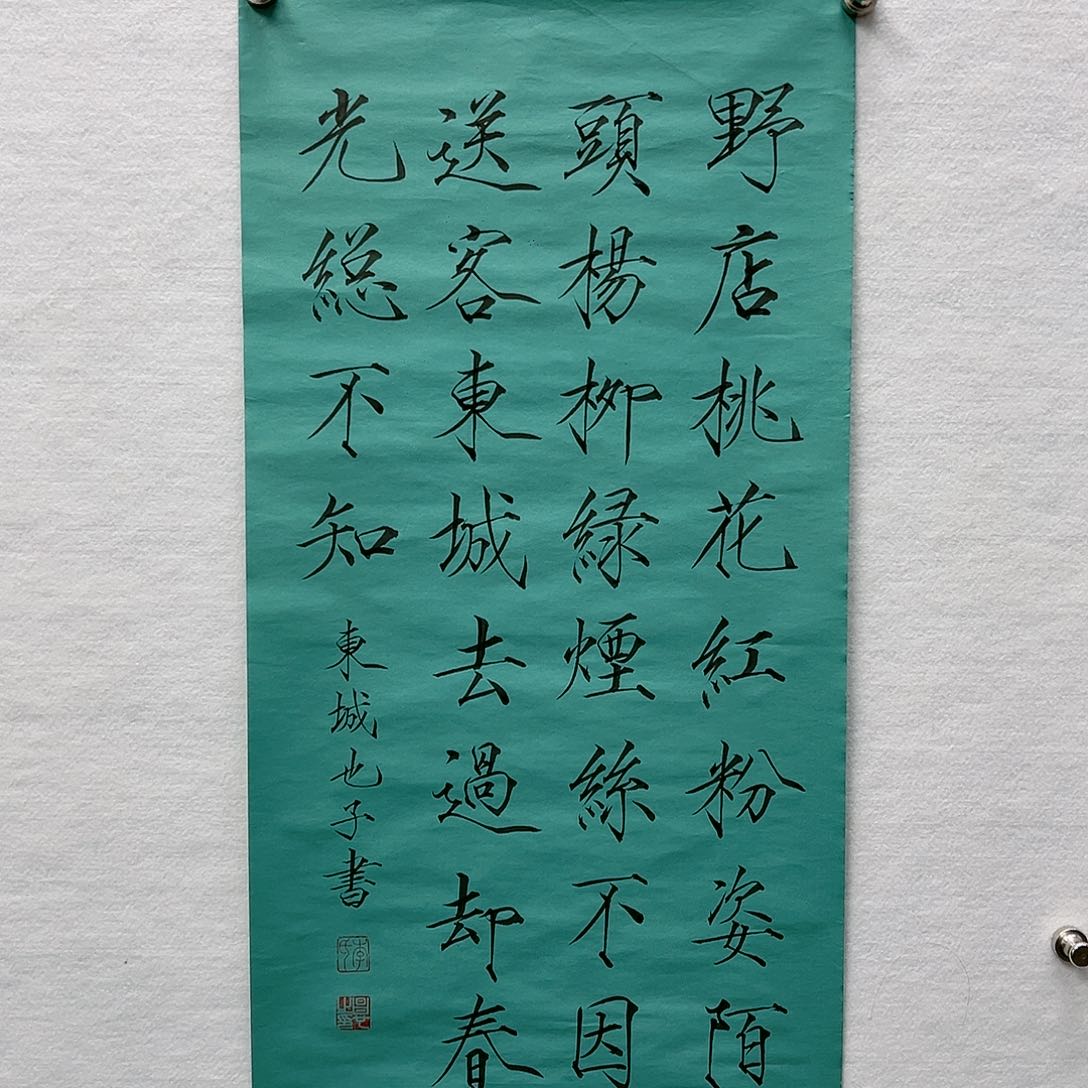 野店桃花紅粉姿陌
頭楊柳緑煙絲不因
送客東城去過却春
光総不知
東城也子書